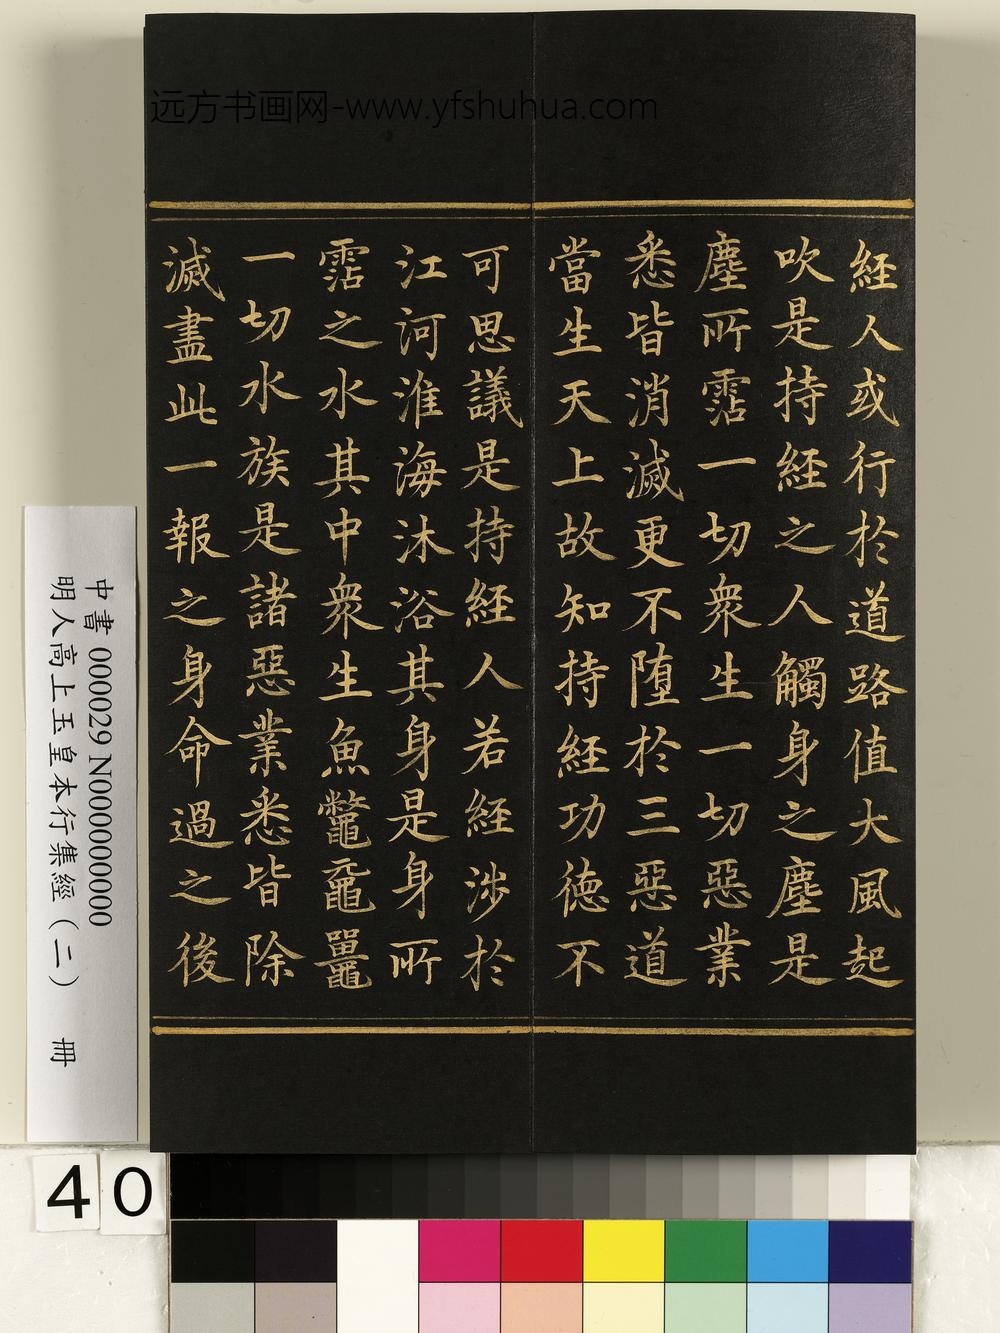 远方书画网-www.yfshuhua.com
經人或行於道路值大風起
吹是持經之人觸身之塵是
塵所霑一切衆生一切惡業
悉皆消滅更不墮於三惡道
當生天上故知持經功德不
可思議是持經人若經涉於
江河淮海沐浴其身是身所
霑之水其中衆生魚鼈黿鼉
一切水族是諸惡業悉皆除
滅盡此一報之身命過之後
中書 000029 N000000000
明人高上玉皇本行集經(二) 冊
40